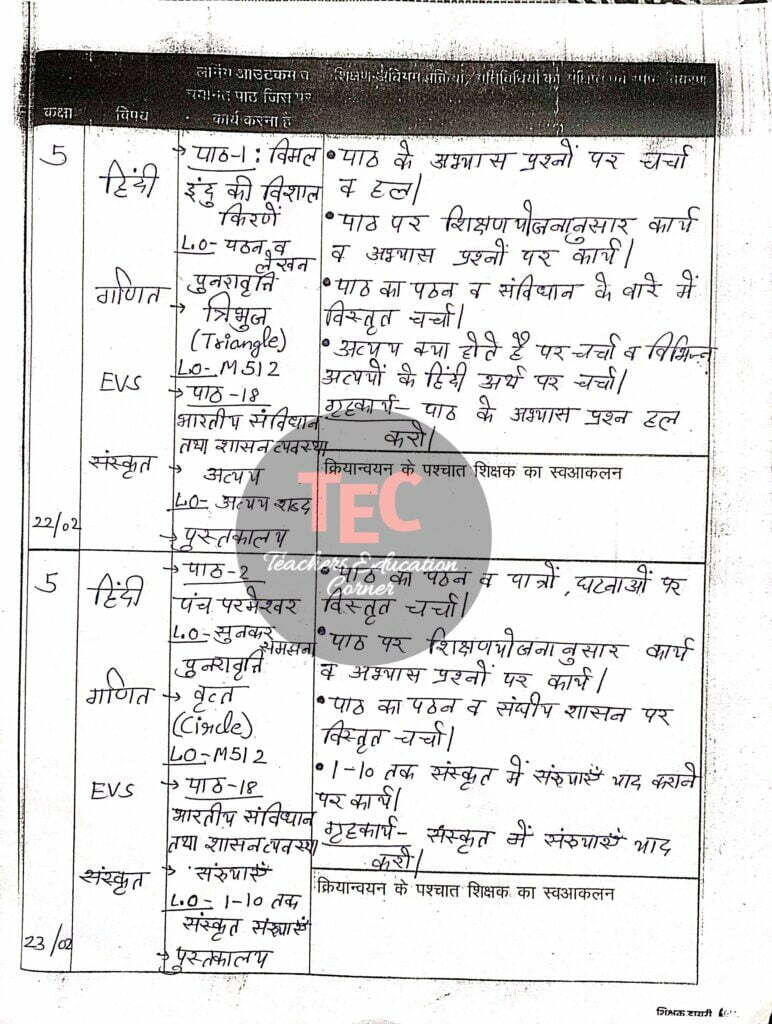 कक्षा
विषय
लर्निंग आउटकम व
चयनित पाठ जिस पर
कार्य करना है
शिक्षण अधिगम प्रक्रिया, गतिविधियों का
5
हिंदी
गणित
EVS
संस्कृत
22/02
→ पाठ-1 : विमल
इंदु की विशाल
किरणें
L.O- पठन व
लेखन
पुनरावृत्ति
→ त्रिभुज
(Triangle)
LO- M512
→ पाठ-18
भारतीय संविधान
तथा शासन व्यवस्था
→ अव्यय
LO- अव्यय शब्द
→ पुस्तकालय
• पाठ के अभ्यास प्रश्नों पर चर्चा
व हल।
• पाठ पर शिक्षणयोजनानुसार कार्य
व अभ्यास प्रश्नों पर कार्य।
• पाठ का पठन व संविधान के बारे में
विस्तृत चर्चा।
• अव्यय क्या होते है पर चर्चा व विभिन्न
अव्ययों के हिंदी अर्थ पर चर्चा।
गृहकार्य- पाठ के अभ्यास प्रश्न हल
करो।
क्रियान्वयन के पश्चात शिक्षक का स्वआकलन
TEC
Teachers Education
Corner
5
हिंदी
गणित
EVS
संस्कृत
23/02
→ पाठ-2
पंच परमेश्वर
L.O- सुनकर
समझना
पुनरावृत्ति
→ वृत्त
(Circle)
LO-M512
→ पाठ-18
भारतीय संविधान
तथा शासन व्यवस्था
→ संख्याएँ
L.O- 1-10 तक
संस्कृत संख्याएँ
→ पुस्तकालय
• पाठ का पठन व पात्रों, घटनाओं पर
विस्तृत चर्चा।
• पाठ पर शिक्षणयोजनानुसार कार्य
व अभ्यास प्रश्नों पर कार्य।
• पाठ का पठन व संघीय शासन पर
विस्तृत चर्चा।
• 1-10 तक संस्कृत में संख्याएँ याद कराने
पर कार्य।
गृहकार्य- संस्कृत में संख्याएँ याद
करो।
क्रियान्वयन के पश्चात शिक्षक का स्वआकलन
शिक्षक डायरी